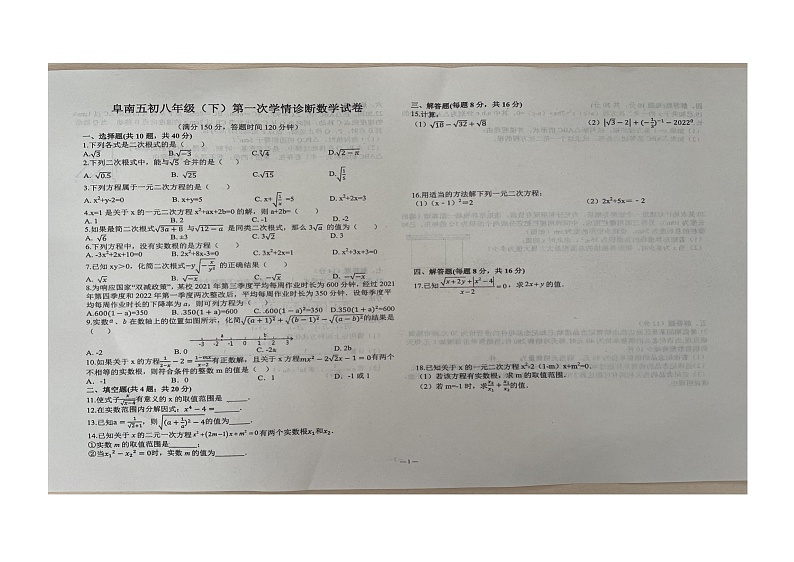 阜南五初八年级（下）第一次学情诊断数学试卷
（满分 150 分，答题时间 120 分钟）
一、选择题(共 10 题，共 40 分)
1.下列各式是二次根式的是（　　）
A.√3 B.√-3 C.∛4 D.√(2-π)
2.下列二次根式中，能与√5 合并的是（　　）
A. √0.5 B. √25 C.√15 D.√(1/5)
3.下列方程属于一元二次方程的是（　　）
A. x²+y-2=0 B. x+y=5 C. x+ =5 D. x²+2x=3
4.x=1 是关于 x 的一元二次方程 x²+ax+2b=0 的解，则 a+2b=（　　）
A. 1 B. 2 C. -1 D. -2
5.如果最简二次根式√(3a+8) 与√(12-a) 是同类二次根式，那么 3√a 的值为（　　）
A. √6 B. ±3 C. 3√2 D. 3
6.下列方程中，没有实数根的是方程（　　）
A. -3x²+2x+10=0 B. 2x²+8x-3=0 C. 3x²+2x=1 D. x²+3x+3=0
7.已知 xy＞0，化简二次根式-y√(-x/y²) 的正确结果（　　）
A. √x B. √-x C. -√x D. -√-x
8.为响应国家“双减政策”，某校 2021 年第三季度平均每周作业时长为 600 分钟，经过 2021
年第四季度和 2022 年第一季度两次整改后，平均每周作业时长为 350 分钟．设每季度平
均每周作业时长的下降率为 a，则可列方程为（　　）
A.600(1-a)=350 B. 350(1+a)=600 C. 600(1-a)²=350 D.350(1+a)²=600
9.实数a、b 在数轴上的位置如图所示，化简√(a+1)²+√(b-1)²-√(a-b)²的结果是
（　　）
-3 -2 -1 0 1 2 3
A. -2 B. 0 C. -2a D. 2b
10.如果关于 x 的方程1/(2-x)-2=(1-mx)/(x-2)有正数解，且关于 x 方程mx²-2√2x-1=0有两个
不相等的实数根，则符合条件的整数 m 的值是（　　）
A. -1 B. 0 C. 1 D. -1 或 1
二、填空题(共 4 题；共 20 分)
11.使式子 有意义的 x 的取值范围是 ______．
12.在实数范围内分解因式：x⁴-4=______．
13.已知a=1/(√2+1)，则√((a+1/a)²-4)的值为____．
14.已知关于 x 的二元一次方程 x²+(2m-1)x+m²=0 有两个实数根x₁和x₂．
①实数 m 的取值范围是______；
②当x₁²-x₂²=0时，实数 m 的值为______．
三、解答题(每题 8 分，共 16 分)
15.计算：
（1）√18-√32+√8 （2）|√3-2|+(-1/2)⁻¹-2022⁰.
16.用适当的方法解下列一元二次方程：
（1）(x-1)²=2 （2）2x²+5x=-2
四、解答题(每题 8 分，共 16 分)
17.已知(√(x+2y)+|x²-4|)/(x-2)=0，求2x+y的值．
18.已知关于 x 的一元二次方程 x²-2（1-m）x+m²=0．
（1）若该方程有实数根，求 m 的取值范围．
（2）若 m=-1 时，求x₂/x₁+x₁/x₂的值．
— 1 —